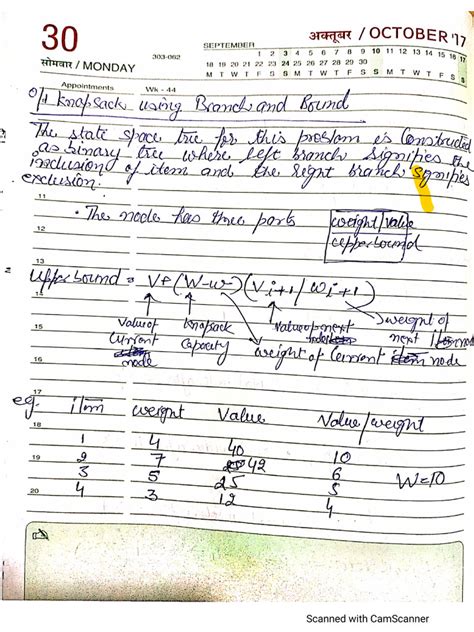 30
सोमवार / MONDAY
अक्तूबर / OCTOBER '17
SEPTEMBER
1 2 3 4 5 6 7 8 9 10 11 12 13 14 15 16 17
303-062
18 19 20 21 22 23 24 25 26 27 28 29 30
M T W T F S S M T W T F S S M T W T F S S M T W T F S S
Appointments
Wk - 44
0/1 Knapsack using Branch and Bound
The state space tree for this problem is Constructed
as binary tree where left branch signifies the
inclusion of item and the right branch signifies
exclusion.
11
12
• The node has three parts
weight/value
upperbound
13
14
Upperbound = V+(W-w)(Vi+1/wi+1)
15
Value of Current node
Knapsack Capacity
weight of Current node
Value of next
weight of next node
16
17
eg. item weight Value Value/weight
18
1 4 40 10
19
2 7 42 6
3 5 25 5
W=10
20
4 3 12 4
Scanned with CamScanner